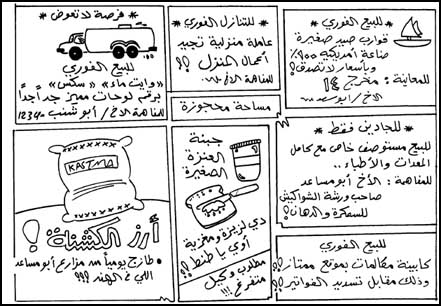 للبيع الفوري
قوارب صيد صغيرة
صناعة أمريكية ١٠٠٪
وبأسعار لا تصدق؟
للمعاينة : مخرج ١٨
الأخ / أبو سعد
للتنازل الفوري
عاملة منزلية تجيد
أعمال المنزل ؟؟
للمفاهمة الأخ /
مساحة محجوزة
* فرصة لا تعوض *
للبيع الفوري
«وايت ماء» «سكس»
برقم لوحات مميز جداً جداً
للمفاهمة الأخ / أبو شنب 12340
للجادين فقط *
للبيع مستوصف خاص مع كامل
المعدات والأطباء ..
للمفاهمة : الأخ أبو مساعد
صاحب ورشة الشواكيش
للسمكرة والدهان !؟
جبنة
العنزة
الصغيرة
دي لزيزة ومغزية
أوي يا طنط !؟
مطلوب وكيل
متفرغ !!!
KASTMA
أرز الكشتنة !
طازج يومياً من مزارع أبو مساعد
اللي في الهند ؟؟؟
للبيع الفوري
كابينة مكالمات بموقع ممتاز ؟؟
وذلك مقابل تسديد الفواتير ؟؟